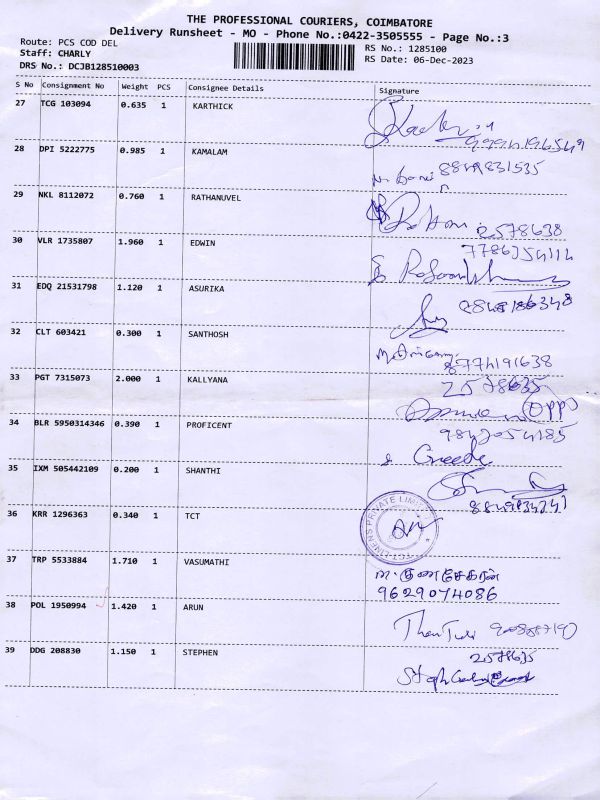 THE PROFESSIONAL COURIERS, COIMBATORE
Delivery Runsheet - MO - Phone No.:0422-3505555 - Page No.:3
Route: PCS COD DEL
RS No.: 1285100
Staff: CHARLY
RS Date: 06-Dec-2023
DRS No.: DCJB128510003
S No Consignment No Weight PCS Consignee Details Signature
27 TCG 103094 0.635 1 KARTHICK
28 DPI 5222775 0.985 1 KAMALAM
8849831535
29 NKL 8112072 0.760 1 RATHANUVEL
2578638
30 VLR 1735807 1.960 1 EDWIN
31 EDQ 21531798 1.120 1 ASURIKA
32 CLT 603421 0.300 1 SANTHOSH
33 PGT 7315073 2.000 1 KALLYANA
2578635
34 BLR 5950314346 0.390 1 PROFICENT
35 IXM 505442109 0.200 1 SHANTHI
36 KRR 1296363 0.340 1 TCT
37 TRP 5533884 1.710 1 VASUMATHI
ம. குணசேகரன்
9629074086
38 POL 1950994 1.420 1 ARUN
39 DDG 208830 1.150 1 STEPHEN
2578635